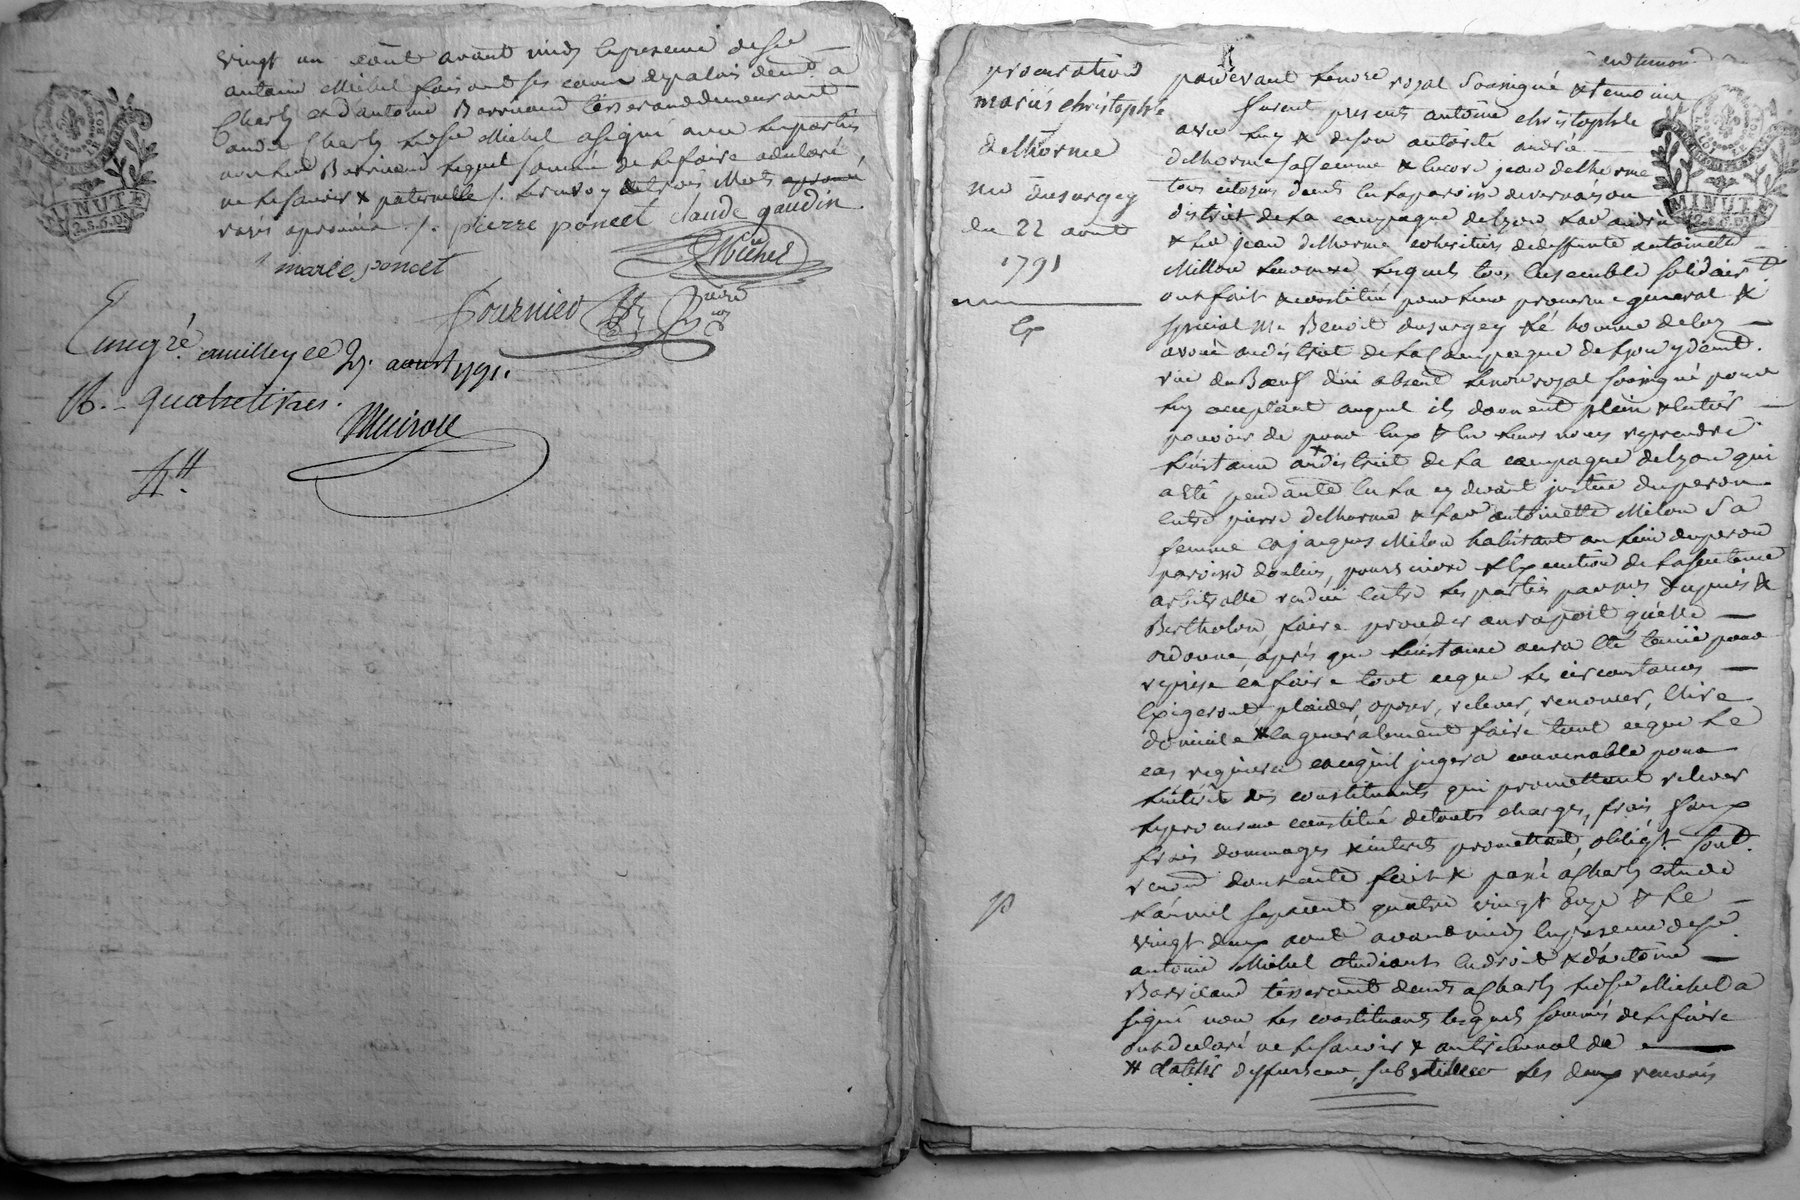 vingt un aout avant midy en presence de sr
antoine Michel faisant ses cours de palais demt a
Charly et d'antoine Barricand tisserand demeurant
audit Charly ledit sr Michel a signé avec les parties
non led Barricand lequel sommé de le faire a declaré
ne le savoir & paternelle /. le renvoy & trois mots
rayés aprouvés /. pierre poncet claude gaudin
marie poncet
Michel
fournier
Enregré. a milley ce 27. aoust 1791.
R. quatre livres.
4tt.
MINUTE
2.S.6.D.
procuration
marié christophle
delhorme
me dusurgey
du 22 aout
1791
Ex
pardevant le notre royal soussigné & temoins
furent presents antoine christophle
avec luy & de son autorité andrée
delhorme sa femme & encore jean delhorme
tous citoyens demts en la paroisse de vernaison
district de la campagne de lyon lad andrée
& led jean delhorme coheritiers de deffunte antoinette
Millon leur mere lesquels tous ensemble solidairt
ont fait & constitué pour leur procureur general &
special Me Benoit dusurgey & é homme de loy
avoué au district de la campagne de lyon y demt.
rue du Bœuf d'ici absent le notre royal soussigné pour
luy acceptant auquel ils donnent plein & entier
pouvoir de pour eux & en leurs noms reprendre
l'instance au district de la campagne de lyon qui
a été pendante en la cy devant justice du peron
entre pierre delhorme & lad antoinette Milon sa
femme et jacques Milon habitant au lieu du peron
paroisse doulins, poursuivre & l'execution de la sentence
arbitralle rendue entre les parties par mes dupuis &
Bertholon, faire proceder au raport qu'elle
ordonne, après que l'instance aura été tenue pour
reprise en faire tout ce que les circonstances
exigeront plaider, oposer, relever, renoncer, elire
domicile # et generalement faire tout ce que le
cas requiera et qu'il jugera convenable pour
l'interêt des constituants qui promettent relever
le procureur constitué de touts charges, frais faux
frais dommages & interets promettant, obligt. soumt.
renonct dont acte fait & passé a Charly etude
l'an mil sept cent quatre vingt onze & le
vingt deux aout avant midy en presence de sr
antoine Michel etudiant en droit & d'antoine
Barricand tisserand demt a Charly ledit sr Michel a
signé non les constituants lesquels sommés de le faire
ont declaré ne le savoir & au tribunal de
# d'atelir substituer les deux renvois
MINUTE
2.S.6.D.